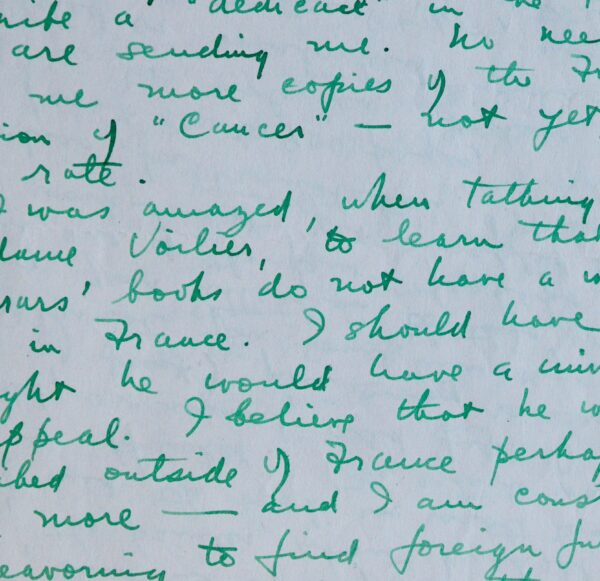 a "dedicace" in the
are sending me. No nee
me more copies of the Fr
ion of "Cancer" — not yet,
rate.
I was amazed, when talking
dame Voilier, to learn that
rars' books do not have a
in France. I should have
ght he would have a univ
ppeal. I believe that he w
outside of France perhap
more — and I am const
eavoring to find foreign